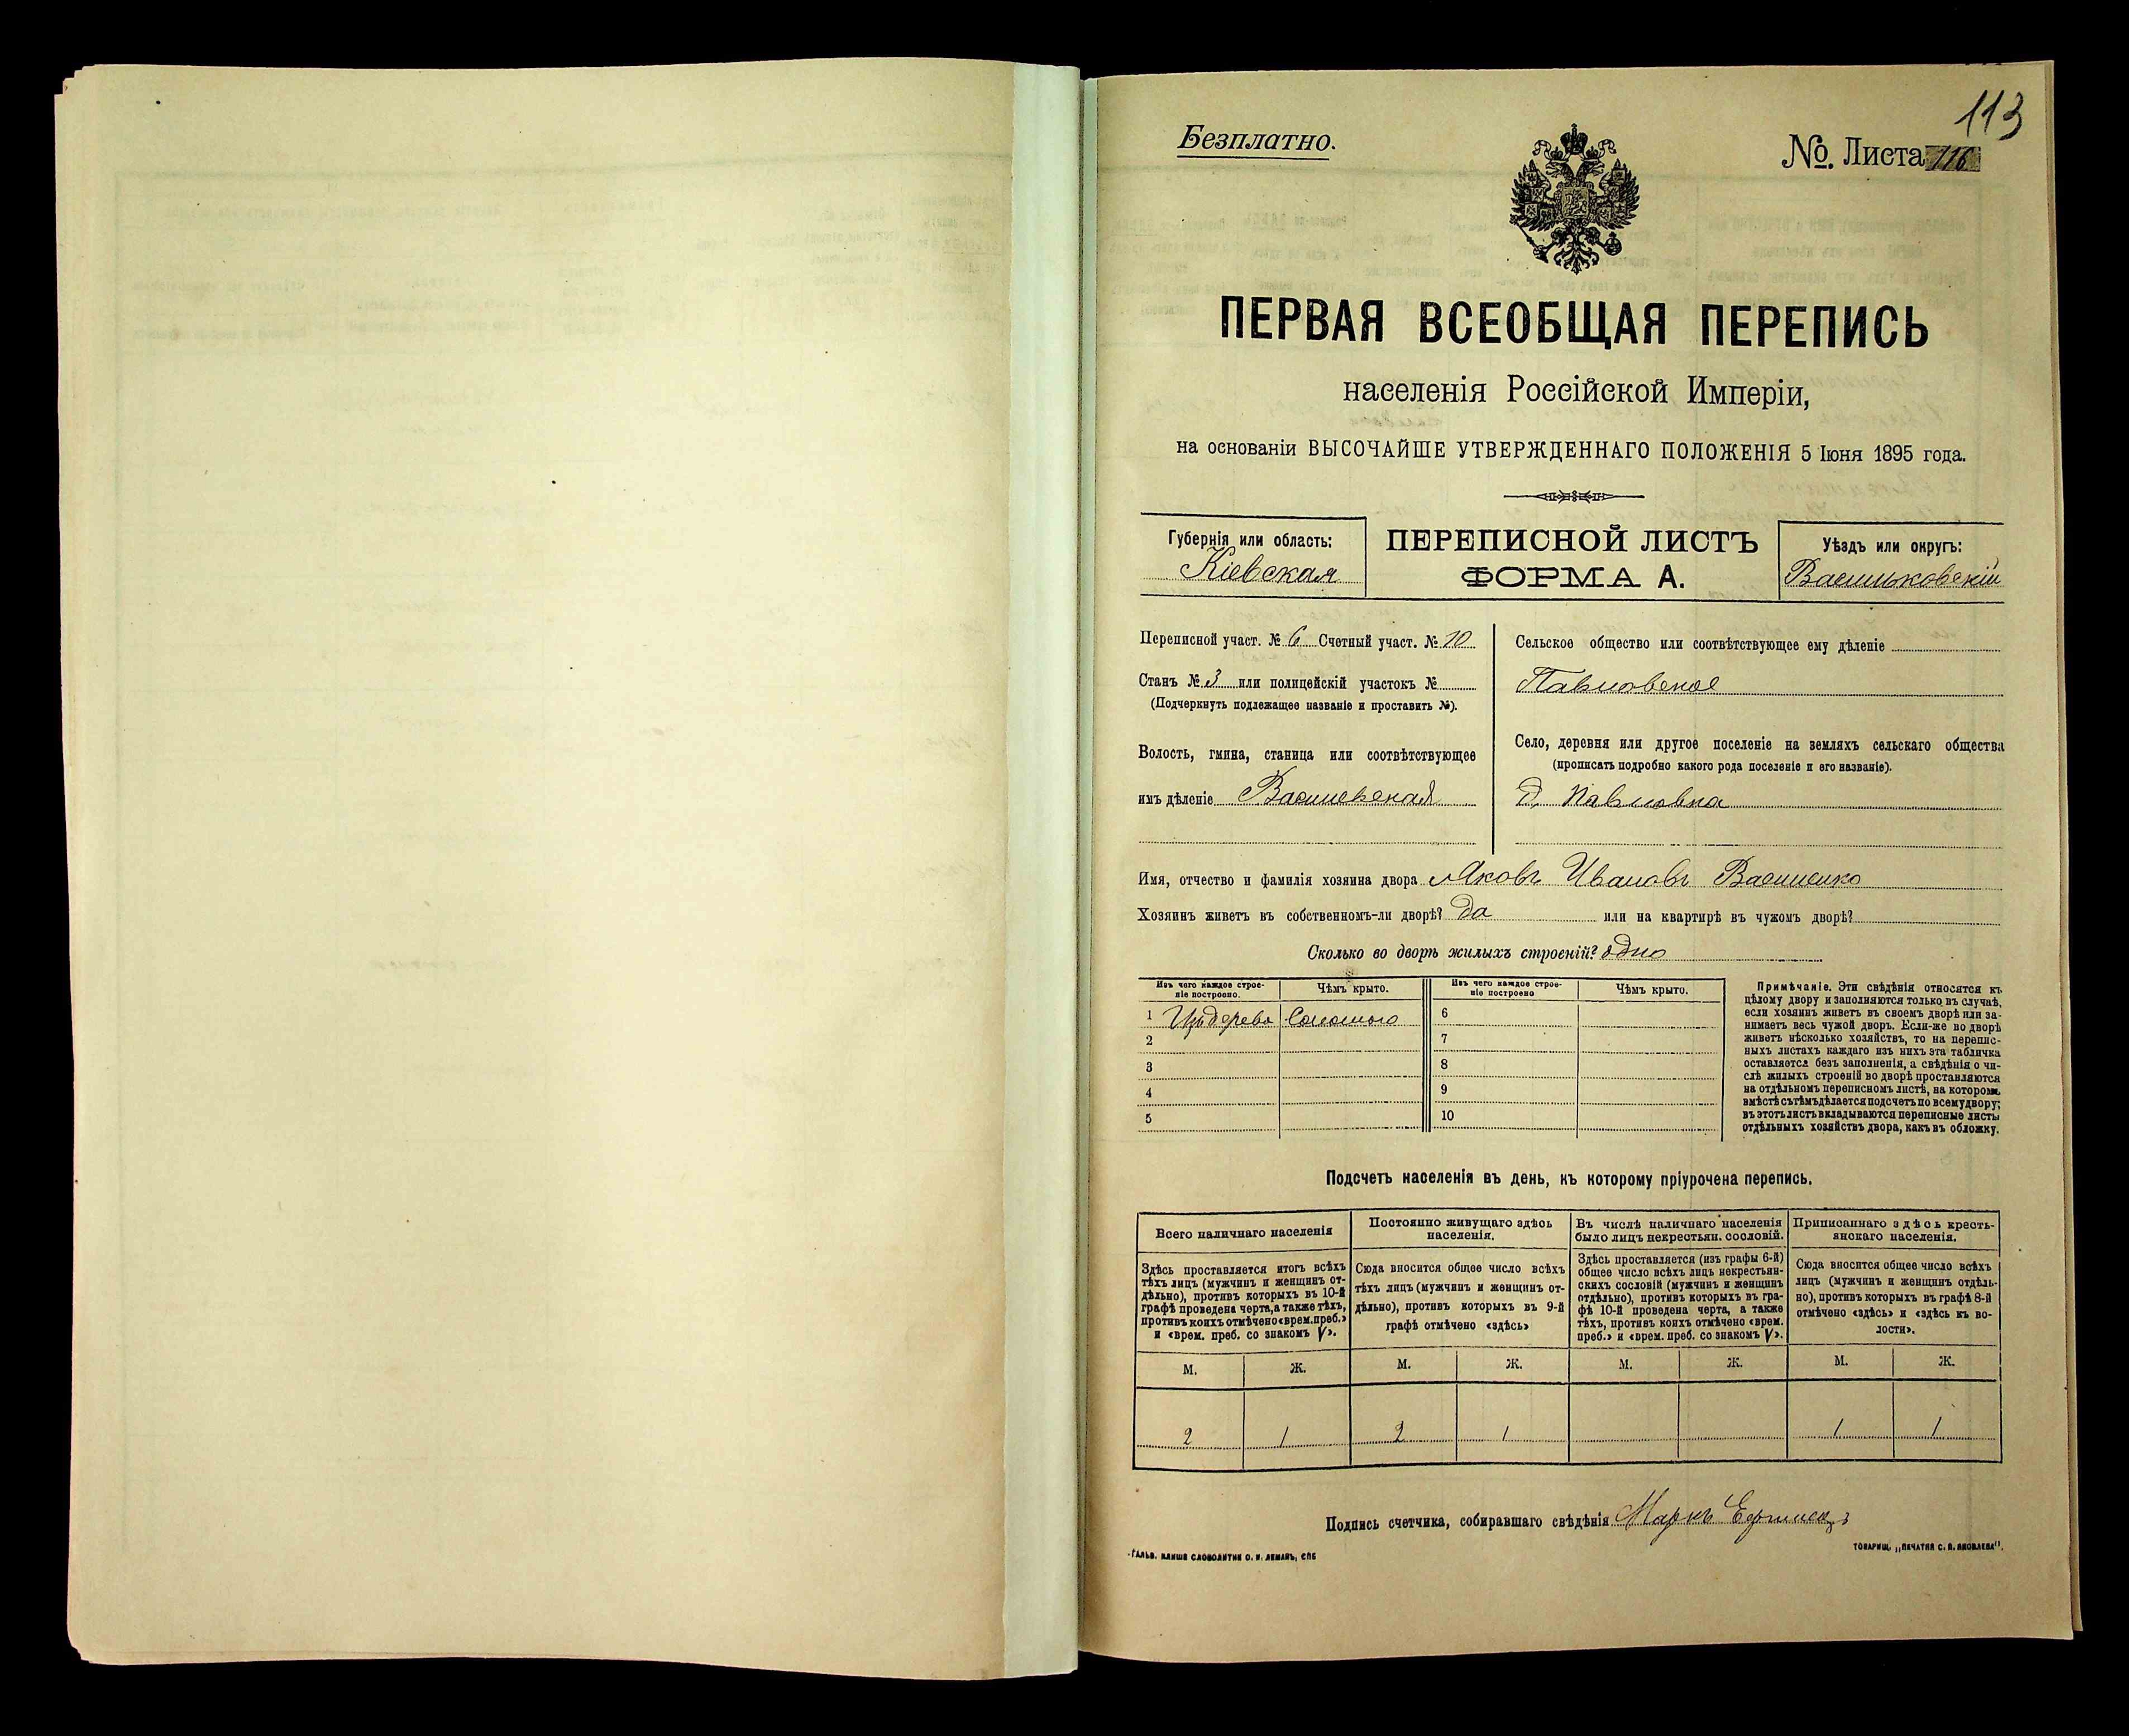 113
Безплатно.
№. Листа 116
ПЕРВАЯ ВСЕОБЩАЯ ПЕРЕПИСЬ
населенія Россійской Имперіи,
на основаніи ВЫСОЧАЙШЕ УТВЕРЖДЕННАГО ПОЛОЖЕНІЯ 5 Іюня 1895 года.
Губернія или область:
Кіевская
ПЕРЕПИСНОЙ ЛИСТЪ
ФОРМА А.
Уѣздъ или округъ:
Васильковскій
Переписной участ. № 6 Счетный участ. № 10
Станъ № 3 или полицейскій участокъ №
(Подчеркнуть подлежащее названіе и проставить №).
Волость, гмина, станица или соотвѣтствующее
имъ дѣленіе Василевская
Сельское общество или соотвѣтствующее ему дѣленіе
Павловское
Село, деревня или другое поселеніе на земляхъ сельскаго общества
(прописать подробно какого рода поселеніе и его названіе).
д. Павловка
Имя, отчество и фамилія хозяина двора Яковъ Ивановъ Василенко
Хозяинъ живетъ въ собственномъ-ли дворѣ? да или на квартирѣ въ чужомъ дворѣ?
Сколько во дворѣ жилыхъ строеній? одно
Изъ чего каждое строе-
ніе построено.
Чѣмъ крыто.
Изъ чего каждое строе-
ніе построено
Чѣмъ крыто.
1 Изъ дерева Соломою 6
2 7
3 8
4 9
5 10
Примѣчаніе. Эти свѣдѣнія относятся къ
цѣлому двору и заполняются только въ случаѣ,
если хозяинъ живетъ въ своемъ дворѣ или за-
нимаетъ весь чужой дворъ. Если-же во дворѣ
живетъ нѣсколько хозяйствъ, то на перепис-
ныхъ листахъ каждаго изъ нихъ эта табличка
оставляется безъ заполненія, а свѣдѣнія о чи-
слѣ жилыхъ строеній во дворѣ проставляются
на отдѣльномъ переписномъ листѣ, на которомъ
вмѣстѣ съ тѣмъ дѣлается подсчетъ по всему двору;
въ этотъ листъ вкладываются переписные листы
отдѣльныхъ хозяйствъ двора, какъ въ обложку.
Подсчетъ населенія въ день, къ которому пріурочена перепись.
Всего наличнаго населенія
Здѣсь проставляется итогъ всѣхъ
тѣхъ лицъ (мужчинъ и женщинъ от-
дѣльно), противъ которыхъ въ 10-й
графѣ проведена черта, а также тѣхъ,
противъ коихъ отмѣчено «врем. преб.»
и «врем. преб. со знакомъ V».
Постоянно живущаго здѣсь
населенія.
Сюда вносится общее число всѣхъ
тѣхъ лицъ (мужчинъ и женщинъ от-
дѣльно), противъ которыхъ въ 9-й
графѣ отмѣчено «здѣсь»
Въ числѣ наличнаго населенія
было лицъ некрестьян. сословій.
Здѣсь проставляется (изъ графы 6-й)
общее число всѣхъ лицъ некрестьян-
скихъ сословій (мужчинъ и женщинъ
отдѣльно), противъ которыхъ въ гра-
фѣ 10-й проведена черта, а также
тѣхъ, противъ коихъ отмѣчено «врем.
преб.» и «врем. преб. со знакомъ V».
Приписаннаго здѣсь кресть-
янскаго населенія.
Сюда вносится общее число всѣхъ
лицъ (мужчинъ и женщинъ отдѣль-
но), противъ которыхъ въ графѣ 8-й
отмѣчено «здѣсь» и «здѣсь къ во-
лости».
М. Ж. М. Ж. М. Ж. М. Ж.
2 1 2 1 1 1
Подпись счетчика, собиравшаго свѣдѣнія Маркъ
ГАЛЬВ. КЛИШЕ СЛОВОЛИТНИ О. И. ЛЕМАНЪ, СПБ
ТОВАРИЩ. „ПЕЧАТНЯ С. П. ЯКОВЛЕВА".